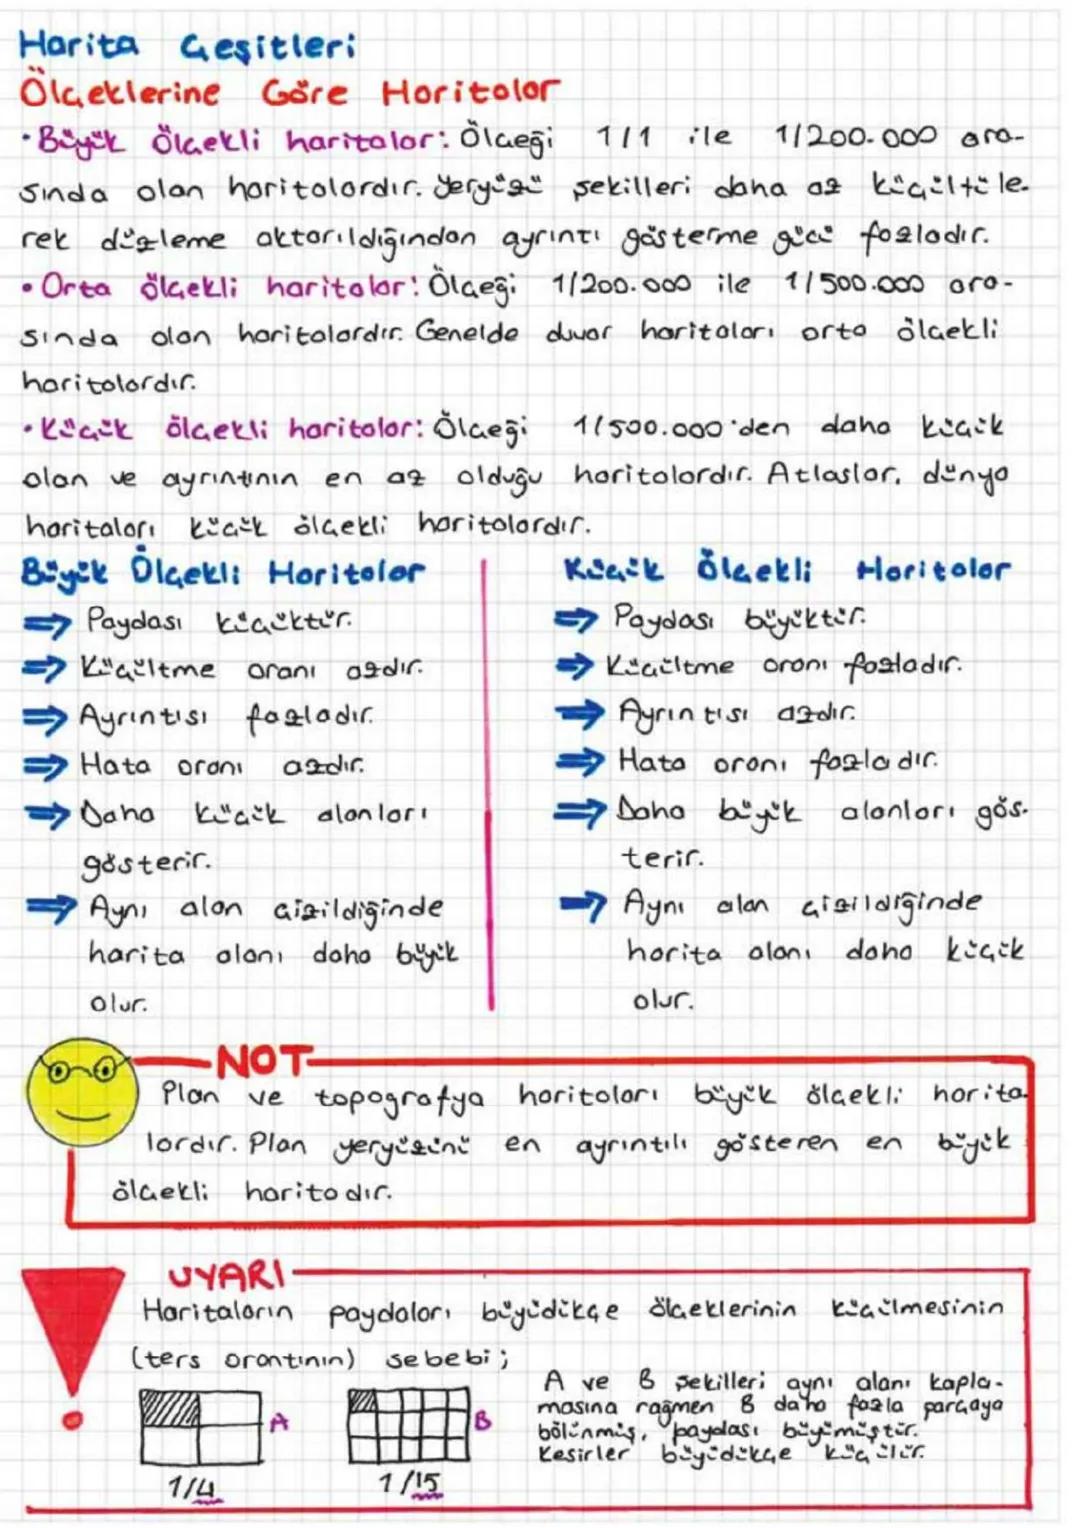 Harita Çeşitleri
Ölçeklerine Göre Haritalar
• Büyük Ölçekli haritalar: Ölçeği 1/1 ile 1/200.000 ara-
sında olan haritalardır. Yeryüzü şekilleri daha az küçültüle-
rek düzleme aktarıldığından ayrıntı gösterme gücü fazladır.
• Orta ölçekli haritalar: Ölçeği 1/200.000 ile 1/500.000 ara-
sında olan haritalardır. Genelde duvar haritaları orta ölçekli
haritalardır.
• Küçük ölçekli haritalar: Ölçeği 1/500.000'den daha küçük
olan ve ayrıntının en az olduğu haritalardır. Atlaslar, dünya
haritaları küçük ölçekli haritalardır.
Büyük Ölçekli Haritalar
⇒ Paydası küçüktür.
⇒ Küçültme oranı azdır.
⇒ Ayrıntısı fazladır.
⇒ Hata oranı azdır.
⇒ Daha küçük alanları
gösterir.
⇒ Aynı alan çizildiğinde
harita alanı daha büyük
olur.
Küçük Ölçekli Haritalar
⇒ Paydası büyüktür.
⇒ Küçültme oranı fazladır.
⇒ Ayrıntısı azdır.
⇒ Hata oranı fazladır.
⇒ Daha büyük alanları gös-
terir.
⇒ Aynı alan çizildiğinde
harita alanı daha küçük
olur.
NOT
Plan ve topografya haritaları büyük ölçekli harita
lardır. Plan yeryüzünü en ayrıntılı gösteren en büyük
ölçekli haritadır.
UYARI
Haritaların paydaları büyüdükçe ölçeklerinin küçülmesinin
(ters orantının) sebebi;
A
1/4
B
1/15
A ve B şekilleri aynı alanı kapla-
masına rağmen B daha fazla parçaya
bölünmüş, paydası büyümüştür.
Kesirler büyüdükçe küçülür.